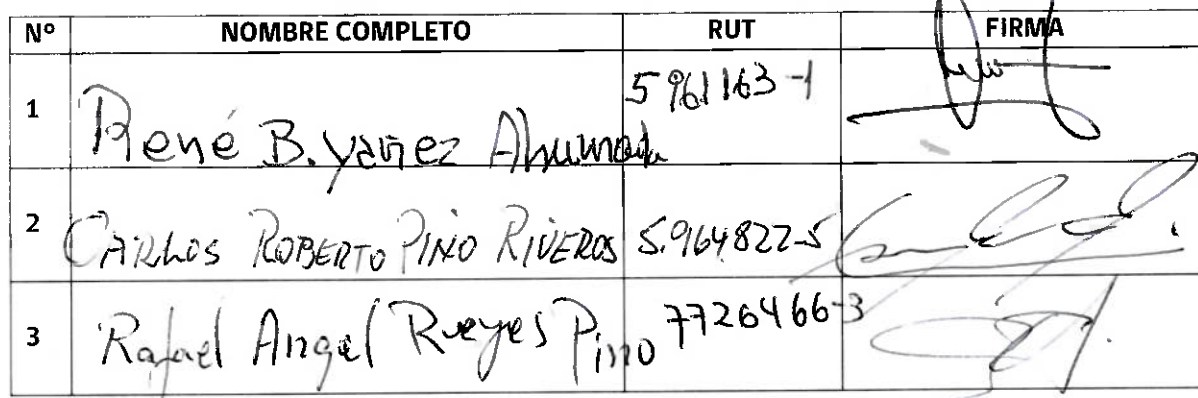 Nº NOMBRE COMPLETO RUT FIRMA
1 René B. yañez Ahumada 5961163-1
2 CARLOS ROBERTO PINO RIVEROS 5.964822-5
3 Rafael Angel Reyes Pino 7726466-3